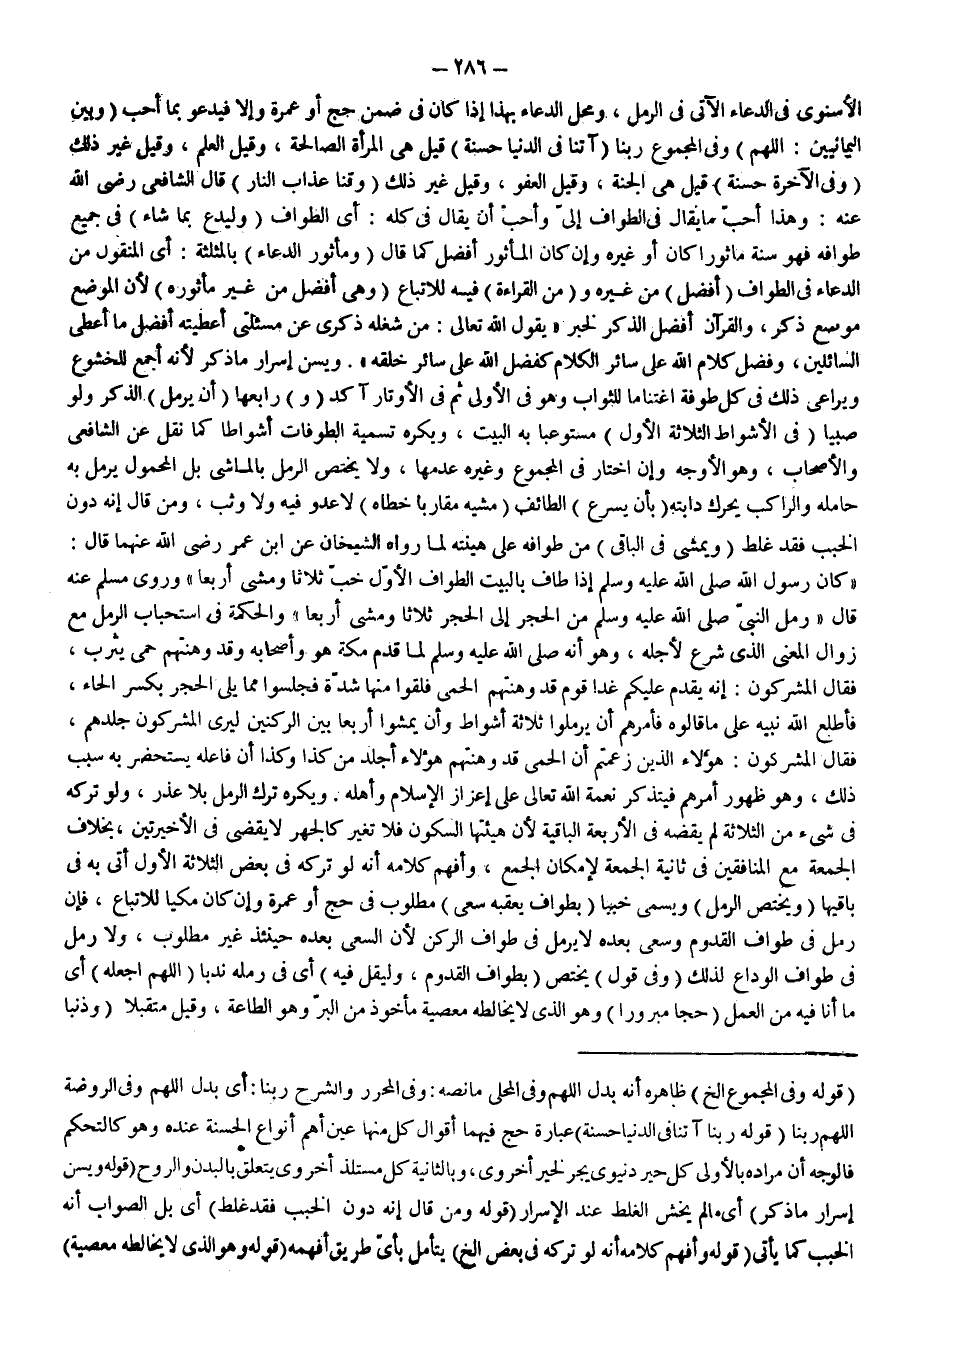 – ٢٨٦ –
الأسنوى فى الدعاء الآتى فى الرمل ، ومحل الدعاء بهذا إذا كان فى ضمن حج أو عمرة وإلا فيدعو بما أحب ( وبين
اليمانيين : اللهم ) وفى المجموع ربنا ( آتنا فى الدنيا حسنة ) قيل هى المرأة الصالحة ، وقيل العلم ، وقيل غير ذلك
( وفى الآخرة حسنة ) قيل هى الجنة ، وقيل العفو ، وقيل غير ذلك ( وقنا عذاب النار ) قال الشافعى رضى الله
عنه : وهذا أحبّ مايقال فى الطواف إلىّ وأحبّ أن يقال فى كله : أى الطواف ( وليدع بما شاء ) فى جميع
طوافه فهو سنة مأثورا كان أو غيره وإن كان المأثور أفضل كما قال ( ومأثور الدعاء ) بالمثلثة : أى المنقول من
الدعاء فى الطواف ( أفضل ) من غيره و ( من القراءة ) فيه للاتباع ( وهى أفضل من غير مأثوره ) لأن الموضع
موضع ذكر ، والقرآن أفضل الذكر لخبر « يقول الله تعالى : من شغله ذكرى عن مسئلتى أعطيته أفضل ما أعطى
السائلين ، وفضل كلام الله على سائر الكلام كفضل الله على سائر خلقه » . ويسن إسرار ماذكر لأنه أجمع للخشوع
ويراعى ذلك فى كل طوفة اغتناما للثواب وهو فى الأولى ثم فى الأوتار آكد ( و ) رابعها ( أن يرمل ) الذكر ولو
صبيا ( فى الأشواط الثلاثة الأول ) مستوعبا به البيت ، ويكره تسمية الطوفات أشواطا كما نقل عن الشافعى
والأصحاب ، وهو الأوجه وإن اختار فى المجموع وغيره عدمها ، ولا يختص الرمل بالماشى بل المحمول يرمل به
حامله والراكب يحرك دابته ( بأن يسرع ) الطائف ( مشيه مقاربا خطاه ) لاعدو فيه ولا وثب ، ومن قال إنه دون
الخبب فقد غلط ( ويمشى فى الباقى ) من طوافه على هينته لما رواه الشيخان عن ابن عمر رضى الله عنهما قال :
« كان رسول الله صلى الله عليه وسلم إذا طاف بالبيت الطواف الأوّل خبّ ثلاثا ومشى أربعا » وروى مسلم عنه
قال « رمل النبىّ صلى الله عليه وسلم من الحجر إلى الحجر ثلاثا ومشى أربعا » والحكمة فى استحباب الرمل مع
زوال المعنى الذى شرع لأجله ، وهو أنه صلى الله عليه وسلم لما قدم مكة هو وأصحابه وقد وهنتهم حمى يثرب ،
فقال المشركون : إنه يقدم عليكم غدا قوم قد وهنتهم الحمى فلقوا منها شدّة فجلسوا مما يلى الحجر بكسر الحاء ،
فأطلع الله نبيه على ماقالوه فأمرهم أن يرملوا ثلاثة أشواط وأن يمشوا أربعا بين الركنين ليرى المشركون جلدهم ،
فقال المشركون : هؤلاء الذين زعمتم أن الحمى قد وهنتهم هؤلاء أجلد من كذا وكذا أن فاعله يستحضر به سبب
ذلك ، وهو ظهور أمرهم فيتذكر نعمة الله تعالى على إعزاز الإسلام وأهله . ويكره ترك الرمل بلا عذر ، ولو تركه
فى شىء من الثلاثة لم يقضه فى الأربعة الباقية لأن هيئتها السكون فلا تغير كالجهر لايقضى فى الأخيرتين ، بخلاف
الجمعة مع المنافقين فى ثانية الجمعة لإمكان الجمع ، وأفهم كلامه أنه لو تركه فى بعض الثلاثة الأول أتى به فى
باقيها ( ويختص الرمل ) ويسمى خببا ( بطواف يعقبه سعى ) مطلوب فى حج أو عمرة وإن كان مكيا للاتباع ، فإن
رمل فى طواف القدوم وسعى بعده لايرمل فى طواف الركن لأن السعى بعده حينئذ غير مطلوب ، ولا رمل
فى طواف الوداع لذلك ( وفى قول ) يختص ( بطواف القدوم ، وليقل فيه ) أى فى رمله ندبا ( اللهم اجعله ) أى
ما أنا فيه من العمل ( حجا مبرورا ) وهو الذى لايخالطه معصية مأخوذ من البرّ وهو الطاعة ، وقيل متقبلا ( وذنبا
( قوله وفى المجموع الخ ) ظاهره أنه بدل اللهم وفى المحلى مانصه : وفى المحرر والشرح ربنا : أى بدل اللهم وفى الروضة
اللهم ربنا ( قوله ربنا آتنا فى الدنيا حسنة ) عبارة حج فيهما أقوال كل منها عين أهم أنواع الحسنة عنده وهو كالتحكم
فالوجه أن مراده بالأولى كل خير دنيوى يجر لخير أخروى ، وبالثانية كل مستلذ أخروى يتعلق بالبدن والروح ( قوله ويسن
إسرار ماذكر ) أى مالم يخش الغلط عند الإسرار ( قوله ومن قال إنه دون الخبب فقد غلط ) أى بل الصواب أنه
الخبب كما يأتى ( قوله وأفهم كلامه أنه لو تركه فى بعض الخ ) يتأمل بأىّ طريق أفهمه ( قوله وهو الذى لايخالطه معصية )